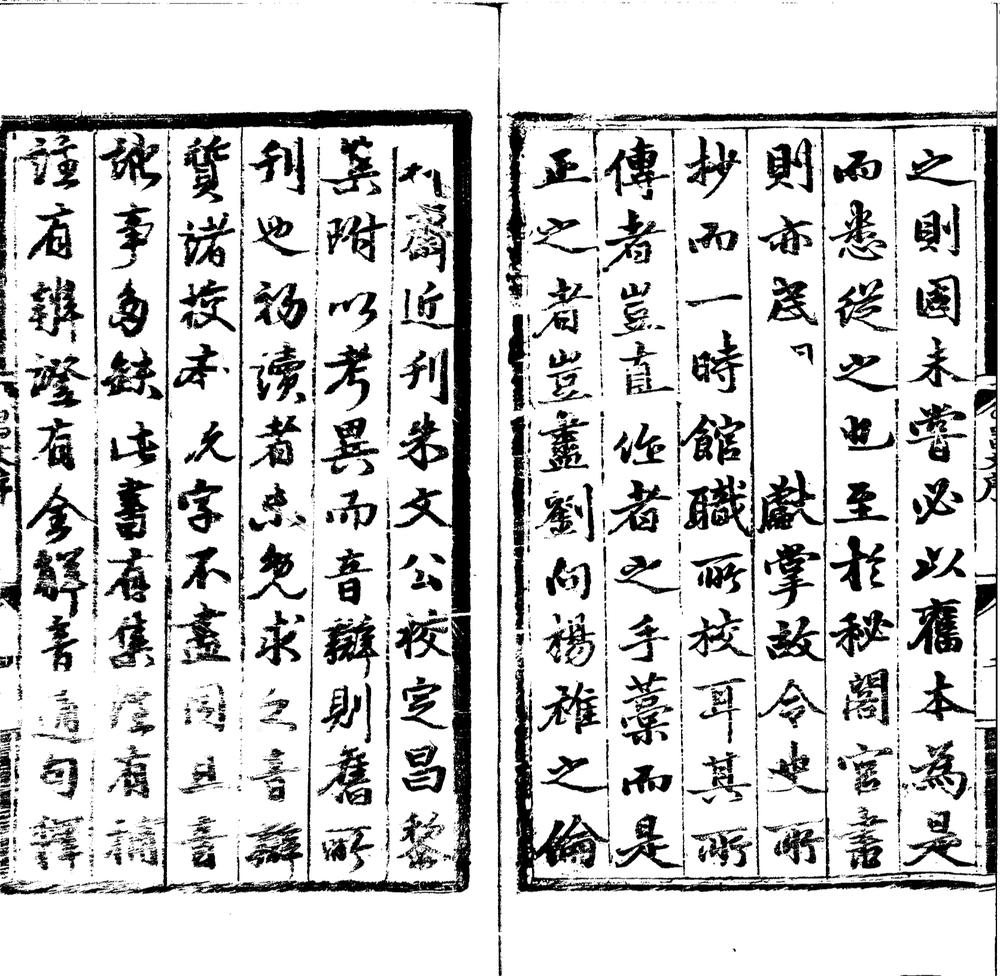 之則固未嘗必以舊本為是
而悉從之也至於秘閣官書
則亦民獻掌故令史所
抄而一時館職所校耳其所
傳者豈真作者之手藁而是
正之者豈盡劉向楊雄之倫
齋近刊朱文公校定昌黎
集附以考異而音辯則舊所
刊也初讀者未免求之音辯
質諸校本字不盡同且音
事多缺此書舊集註有補
註有辨證有全解音通句釋
昌文序